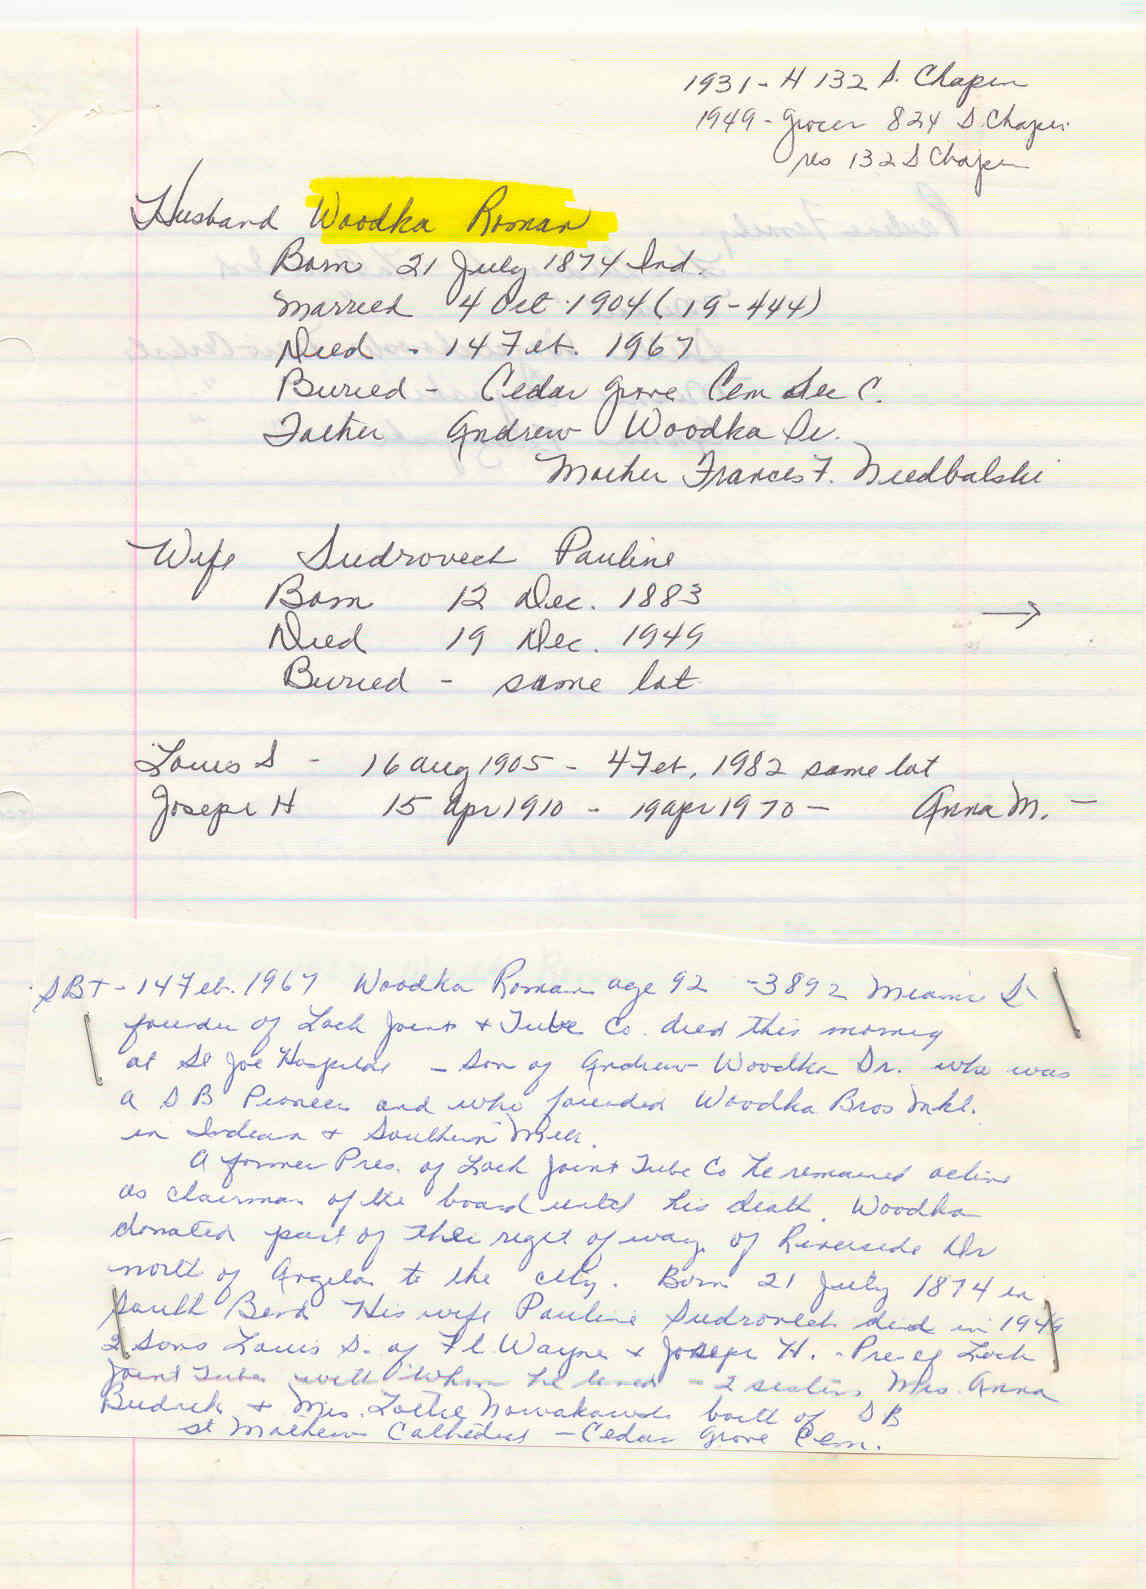 1931 - H 132 S. Chapin
1949 - Grocer 824 S. Chapin
res 132 S Chapin
Husband Woodka Roman
Born 21 July 1874 Ind.
Married 4 Oct. 1904 (19-444)
Died - 14 Feb. 1967
Buried - Cedar Grove Cem Sec C.
Father Andrew Woodka Sr.
Mother Frances F. Niedbalski
Wife Sudrovech Pauline
Born 12 Dec. 1883
Died 19 Dec. 1949
Buried - same lot
Louis S - 16 Aug 1905 - 4 Feb, 1982 same lot
Joseph H 15 Apr 1910 - 19 Apr 1970 - Anna M. -
SBT - 14 Feb. 1967 Woodka Roman age 92 - 3892 Miami St
founder of Lock Joint & Tube Co. died this morning
at St Joe Hospital - son of Andrew Woodka Sr. who was
a S B Pioneer and who founded Woodka Bros Mkt.
in Indiana & Southern Mich.
A former Pres. of Lock Joint Tube Co he remained active
as chairman of the board until his death. Woodka
donated part of the right of way of Riverside Dr
north of Angela to the city. Born 21 July 1874 in
South Bend His wife Pauline Sudrovech died in 1949
2 sons Louis S. of Ft. Wayne & Joseph H. - Pres of Lock
Joint Tube with whom he lived - 2 sisters Mrs. Anna
Budnik & Mrs. Lottie Nowakowski both of S B
St Mathews Cathedral - Cedar Grove Cem.